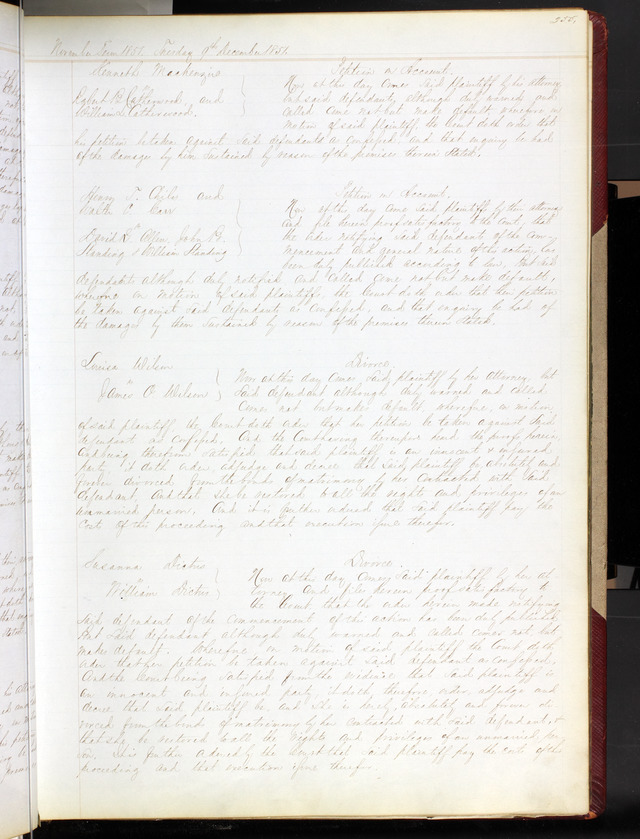 555.
November Term 1857. Tuesday 9th December 1857.
Kenneth Mackenzie Petition on Account.
Now at this day came said plaintiff by his attorney
Robert B. Catherwood and but said defendants although duly warned and
William L. Catherwood. called come not but make default wherefore on
motion of said plaintiff the Court doth order that
his petition be taken against said defendants as confessed, and that enquiry be had
of the damages by him sustained by reason of the premises therein stated.
Henry T. and Petition on Account.
Carr Now at this day came said plaintiffs by their attorney
and file herein proof satisfactory to the Court, that
David R. John B. the order notifying said defendants of the com-
Harding & William Harding mencement and general nature of the action has
been duly published according to law, but said
defendants although duly notified and called come not but make default,
wherefore on motion of said plaintiffs, the Court doth order that their petition
be taken against said defendants as confessed, and that enquiry be had of
the damages by them sustained by reason of the premises therein stated.
Louisa Wilson Divorce.
Now at this day comes said plaintiff by her attorney, but
James C. Wilson said defendant although duly warned and called
comes not but makes default, wherefore, on motion
of said plaintiff the Court doth order that her petition be taken against said
defendant as confessed. And the Court having thereupon heard the proof
and being therefrom satisfied that said plaintiff is an innocent & injured
party, it doth order, adjudge and decree that said plaintiff be absolutely and
forever divorced from the bonds of matrimony by her contracted with said
defendant, and that she be restored to all the rights and privileges of an
unmarried person. And it is further ordered that said plaintiff pay the
costs of this proceeding and that execution issue therefor.
Susanna Divorce.
Now at this day comes said plaintiff by her at-
William torney and files herein proof satisfactory to
the Court that the order herein made notifying
said defendant of the commencement of this action has been duly published
but said defendant although duly warned and called comes not but
makes default. Wherefore on motion of said plaintiff the Court doth
order that her petition be taken against said defendant as confessed.
And the Court being satisfied from the evidence that said plaintiff is
an innocent and injured party, it doth, therefore, order, adjudge and
decree that said plaintiff be, and she is hereby absolutely and forever di-
vorced from the bonds of matrimony by her contracted with said defendant, &
that she be restored to all the rights and privileges of an unmarried per-
son. It is further ordered by the Court that said plaintiff pay the costs of this
proceeding and that execution issue therefor.